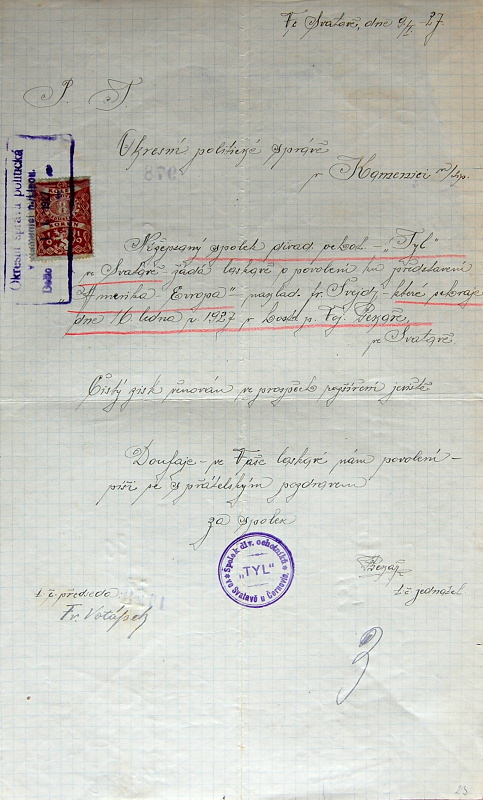 Ve Svatavě, dne 9/1. -27
P. T.
Okresní politické správě
v Kamenici n/Lip.
Okresní správa politická
v Kamenici n/Lipou.
Došlo
Nížepsaný spolek divad. ochot. - „Tyl"
ve Svatavě žádá laskavě o povolení ku představení
Amerika Evropa" - naglad. fr. Švejdy - které sehraje
dne 16 ledna v 1927 v host. p. Voj. Pekaře,
ve Svatavě.
Čistý zisk věnován ve prospěch pojištění jeviště
Doufaje - ve Vaše laskavé nám povolení -
prší se s přátelským pozdravem
za spolek
Spolek div. ochotníků
„TYL"
ve Svatavě u Černovic
t. č. předseda
Fr. Votápek
t. č. jednatel
3
23